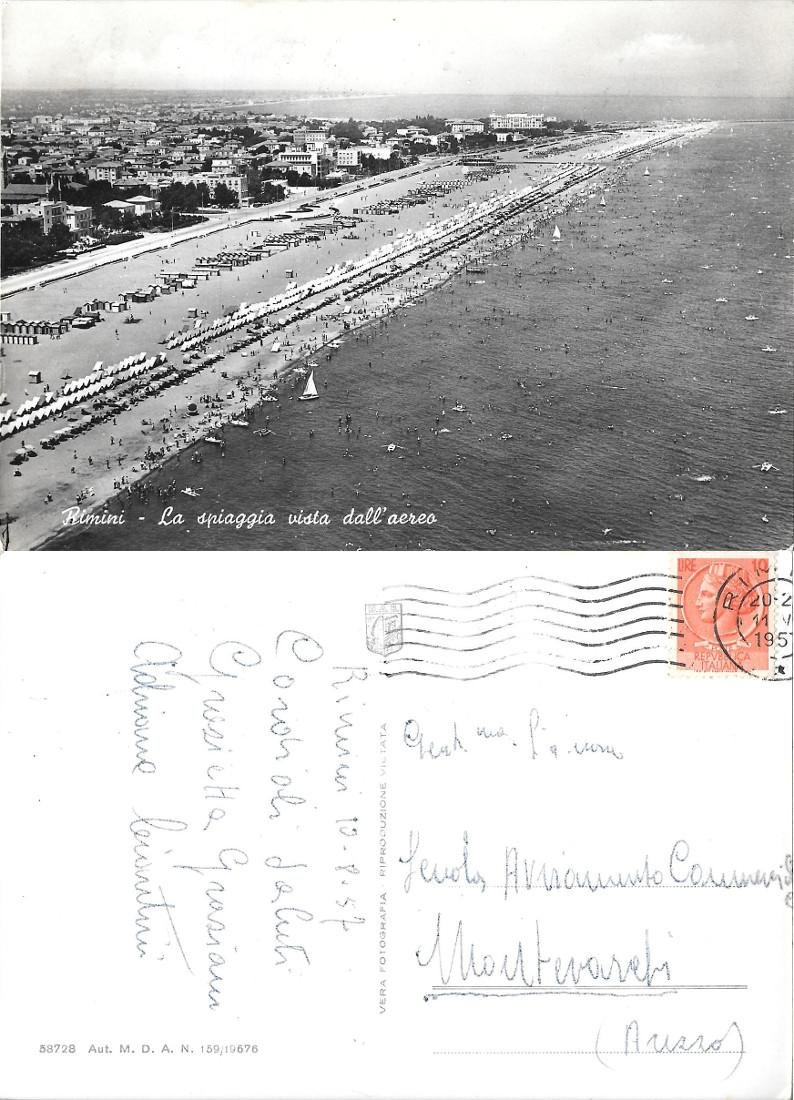 Rimini - La spiaggia vista dall'aereo
LIRE 10
REPVBBLICA
ITALIANA
20-2
11
1957
Rimini 10.8.57
Cordiali saluti
Graziella Graziani
Adriana
VERA FOTOGRAFIA - RIPRODUZIONE VIETATA
Gent.ma
Scuola Avviamento Commerciale
Montevarchi
(Arezzo)
58728 Aut. M. D. A. N. 159/19576